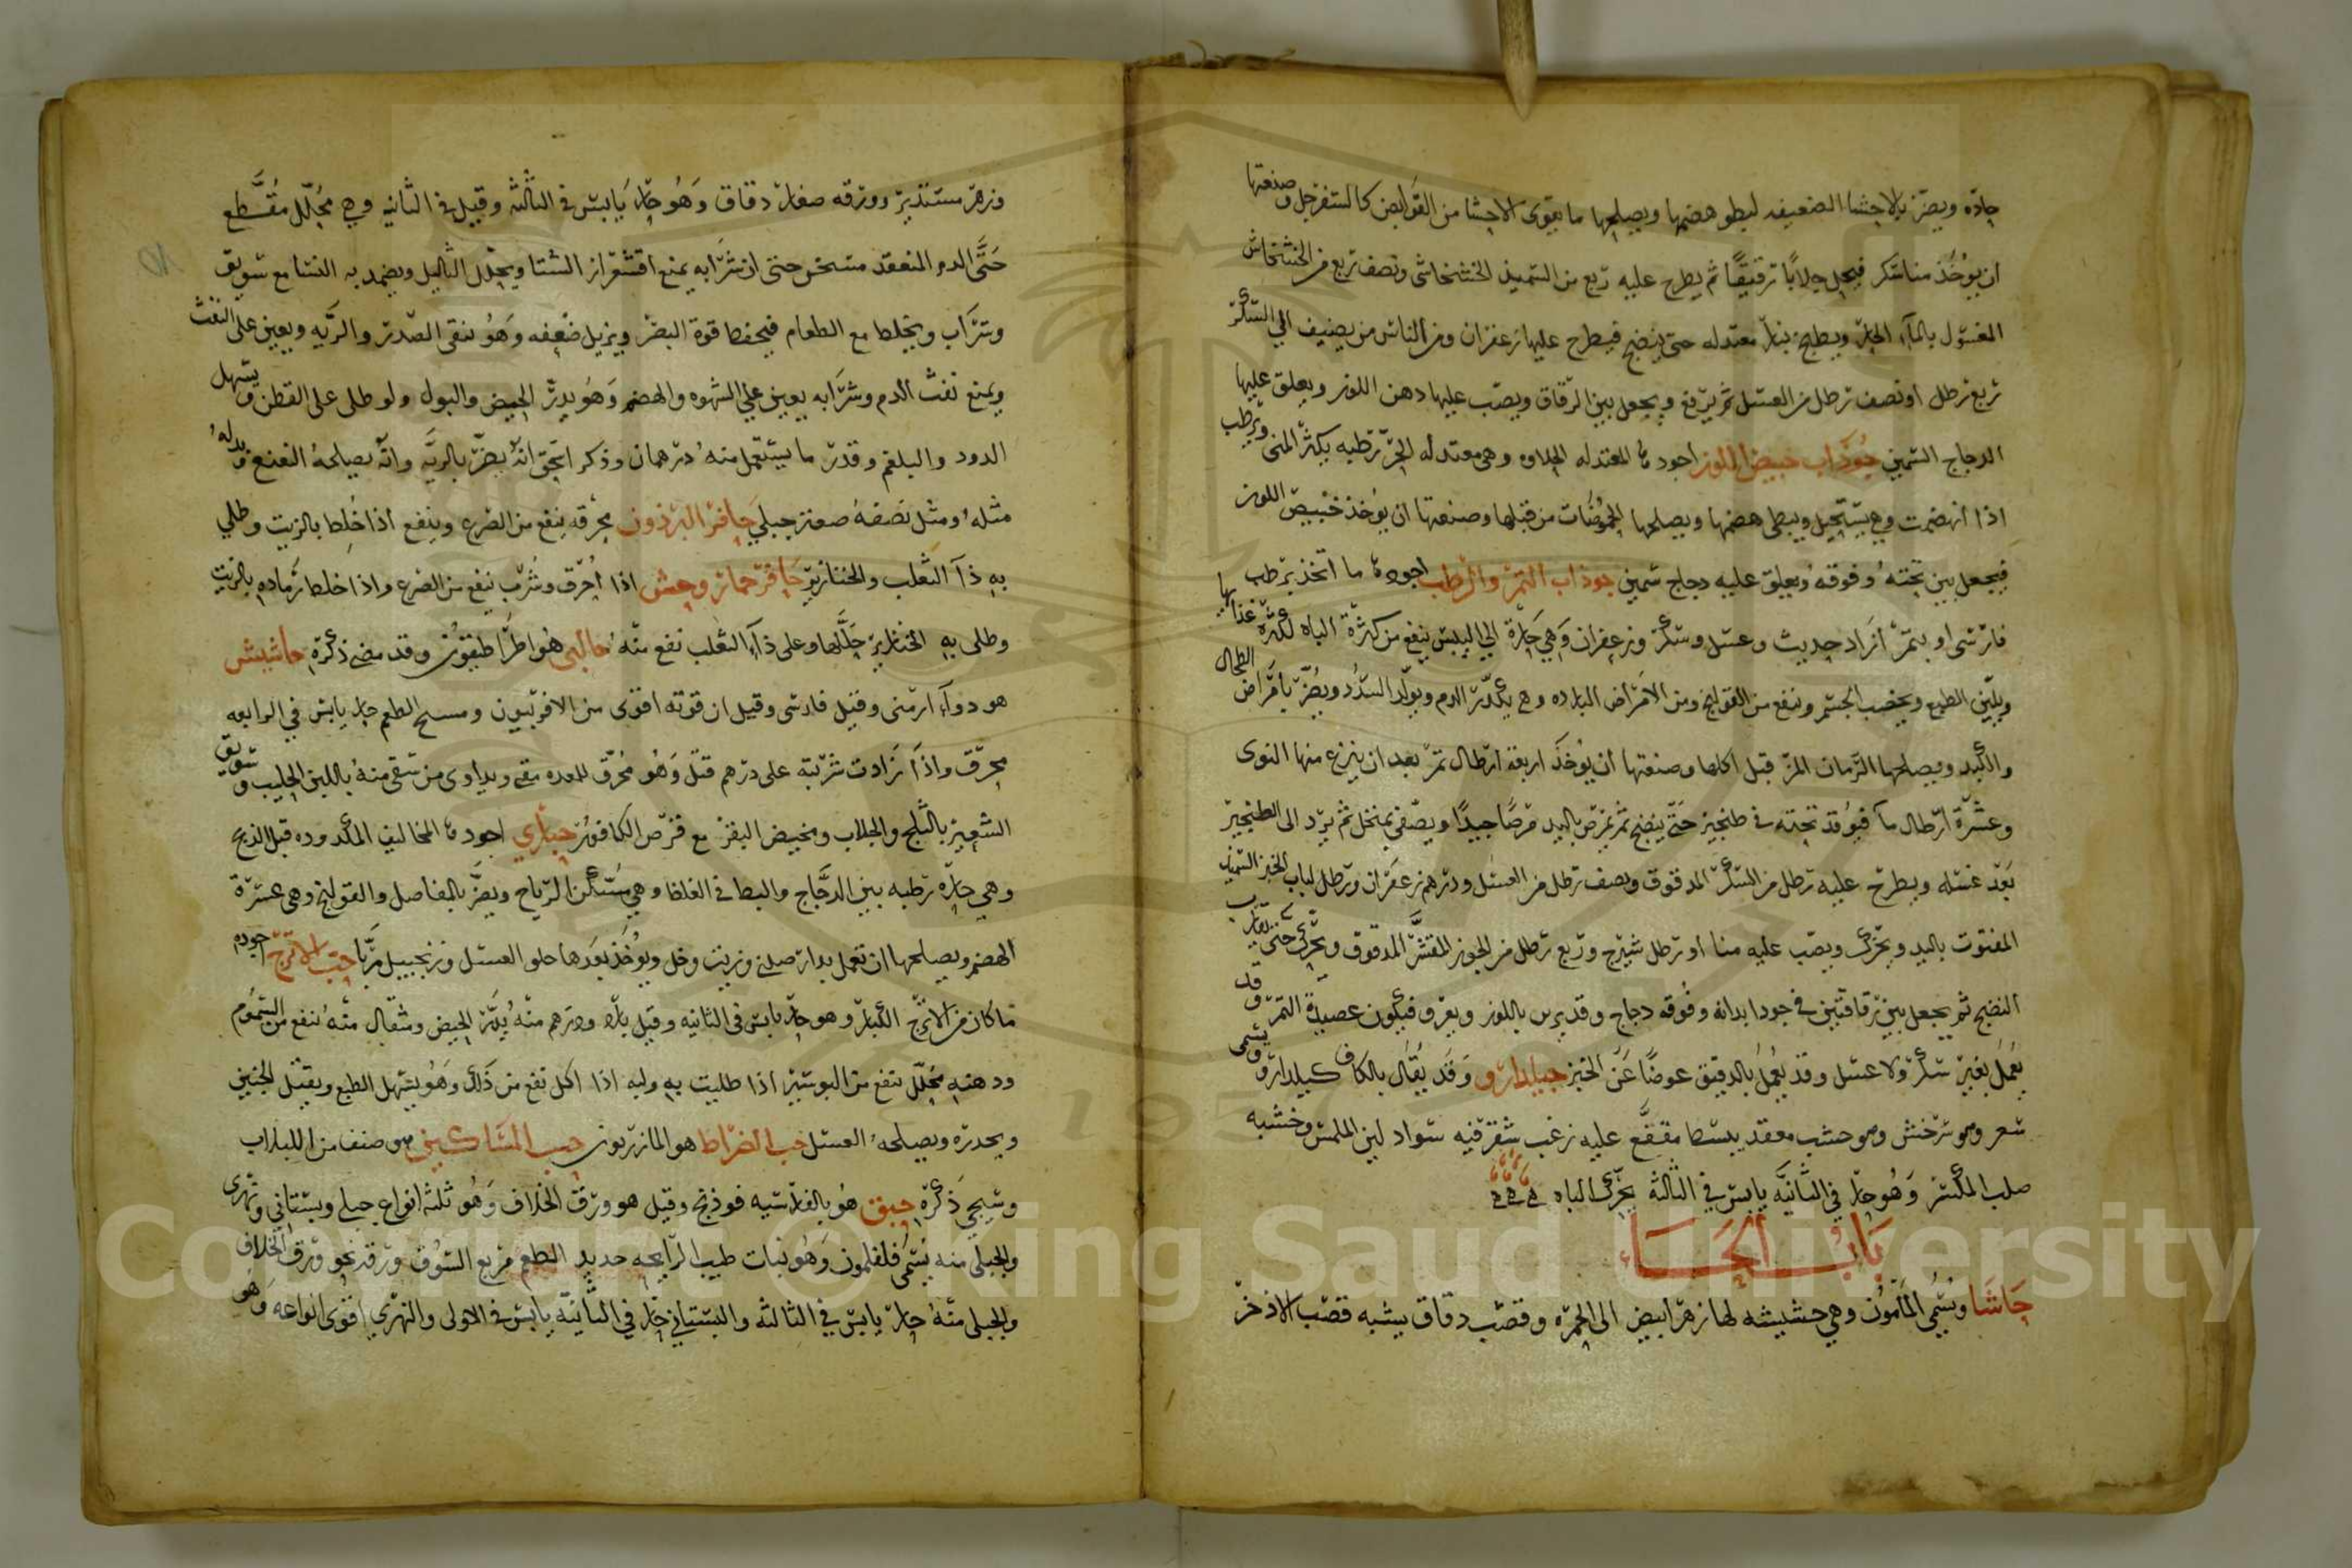 حارة ويضر بالاحشا الضعيفه لبطو هضمها ويصلحها ما يقوى الاحشا من القوابض كالسفرجل وصنعتها
ان يؤخذ منا سكر فيحل جلابا رقيقا ثم يطرح عليه ربع من السميذ الخشخاشى ونصف ربع من الخشخاش
المغسول بالمآء الحار ويطبخ بنار معتدله حتى ينضج فيطرح عليها زعفران ومن الناس من يضيف الى السكر
ربع رطل او نصف رطل من العسل ثم يرفع ويجعل بين الرقاق ويصب عليها دهن اللوز ويعلق عليها
الدجاج السمين جوذاب خبيص اللوز اجودها المعتدله الحلاوه وهى معتدله الحر رطبه يكثر المنى ويرطب
اذا انهضمت وهى يستحيل ويبطى هضمها ويصلحها الحموضات من قبلها وصنعتها ان يؤخذ خبيص اللوز
فيجعل بين تحته وفوقه ويعلق عليه دجاج سمين جوذاب التمر والرطب اجوده ما اتخذ برطب
فارسى او بتمر ازاد حديث وعسل وسكر وزعفران وهي حارة الي اليبس ينفع من كثرة الباه لكثرة غذايها
ويلين الطبع ويخصب الجسم وينفع من القولنج ومن الامراض البارده وهى يكدر الدم ويولد السدد ويضر بامراض الطحال
والكبد ويصلحها الرمان المز قبل اكلها وصنعتها ان يؤخذ اربعة ارطال تمر بعد ان ينزع منها النوى
وعشرة ارطال مآ فيوقد تحته في طنجير حتى ينضج ثم يمرس باليد مرسا جيدا ويصفى بمنخل ثم يرد الى الطنجير
بعد غسله ويطرح عليه رطل من السكر المدقوق ونصف رطل من العسل ودرهم زعفران ورطل لباب الخبز السميذ
المفتوت باليد ويحرك ويصب عليه منا او رطل شيرج وربع رطل من الجوز المقشر المدقوق ويحرك حتى يقارب
النضج ثم يجعل بين رقاقتين في جودابدانه وفوقه دجاج وقد يربى باللوز ويعرق فيكون عصيدة التمر وقد
يعمل بغير سكر ولا عسل وقد يعمل بالدقيق عوضا عن الخبز جيلدارو وقد يقال بالكاف كيلدارو ويسمى
سعر وهو سرخس وهو خشب معقد يبسط مقفع عليه زغب شقر فيه سواد لين الملمس وخشبه
صلب المكسر وهو حار في الثانيه يابس في الثالثه يحرك الباه
باب الحاء
حاشا ويسمى المأمون وهي حشيشه لها زهر ابيض الى الحمرة وقضب دقاق يشبه قضب الاذخر
وزهر مستدير وورقه صغار دقاق وهو حار يابس في الثالثه وقيل في الثانيه وهي محلل مقطع
حتى الدم المنعقد مسخن حتى ان شرابه يمنع اقشعرار الشتا ويحلل الثاليل ويضمد به النسا مع سويق
وشراب ويخلط مع الطعام فيحفظ قوة البصر ويزيل ضعفه وهو ينقى الصدر والريه ويعين على النفث
ويمنع نفث الدم وشرابه يعين علي الشهوه والهضم وهو يدر الحيض والبول ولو طلى على القطن ويسهل
الدود والبلغم وقدر ما يستعمل منه درهمان وذكر اسحق انه يضر بالريه وانه يصلحه النعنع وبدله
مثله ومثل نصفه صعتر جبلي حافر البرذون محرقه ينفع من الصرع وينفع اذا خلط بالزيت وطلي
به دآ الثعلب والخنازير حافر حمار وحش اذا احرق وشرب ينفع من الصرع واذا خلط رماده بالزيت
وطلى به الخنازير حللها وعلى دآء الثعلب نفع منه حالبى هو اطراطيقون وقد مضى ذكره حاشيش
هو دوآء ارمنى وقيل فارسى وقيل ان قوته اقوى من الافربيون ومسيح الطعم حار يابس في الرابعه
محرق واذا زادت شربته على درهم قتل وهو محرق للمعده مقى ويداوى من سقى منه باللبن الحليب وسويق
الشعير بالثلج والجلاب ومخيض البقر مع قرص الكافور حبارى اجودها المخاليف المكدوده قبل الذبح
وهي حاره رطبه بين الدجاج والبط في الغلظ وهي تسكن الرياح ويضر بالمفاصل والقولنج وهى عسرة
الهضم ويصلحها ان تعمل بدار صيني وزيت وخل ويؤخذ بعدها حلو العسل وزنجبيل مربا حب الاترج اجوده
ما كان من الاترج الكبار وهو حار يابس فى الثانيه وقيل بارد ودرهم منه يدر الحيض ومثقال منه ينفع من السموم
ودهنه محلل ينفع من البواسير اذا طليت به ولبه اذا اكل نفع من ذلك وهو يسهل الطبع ويقتل الجنين
ويحدره ويصلحه العسل حب الضراط هو المازريون حب المساكين هو صنف من اللبلاب
وسيجي ذكره حبق هو بالفارسيه فوذنج وقيل هو ورق الخلاف وهو ثلثة انواع جبلى وبستانى ونهرى
والجبلى منه يسمى فلفلمون وهو نبات طيب الرايحه حديد الطعم مربع السوق ورقه نحو ورق الخلاف
والجبلى منه حار يابس في الثالثه والبستاني حار في الثانيه يابس في الاولى والنهري اقوى انواعه وهو
Copyright © King Saud University
1957